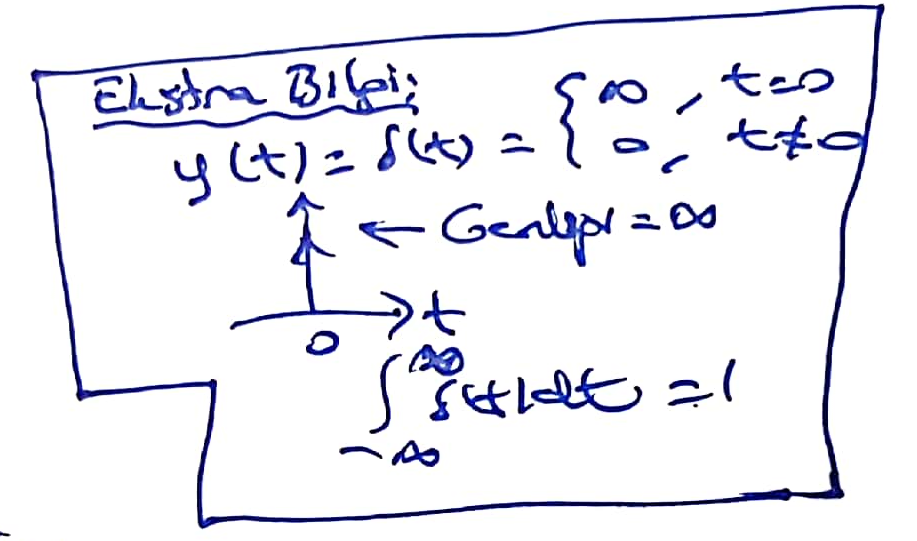 Ekstra Bilgi:
y(t) = δ(t) = { ∞, t=0
0, t≠0
← Genliği = ∞
t
0
∫_{-∞}^{∞} δ(t)dt = 1